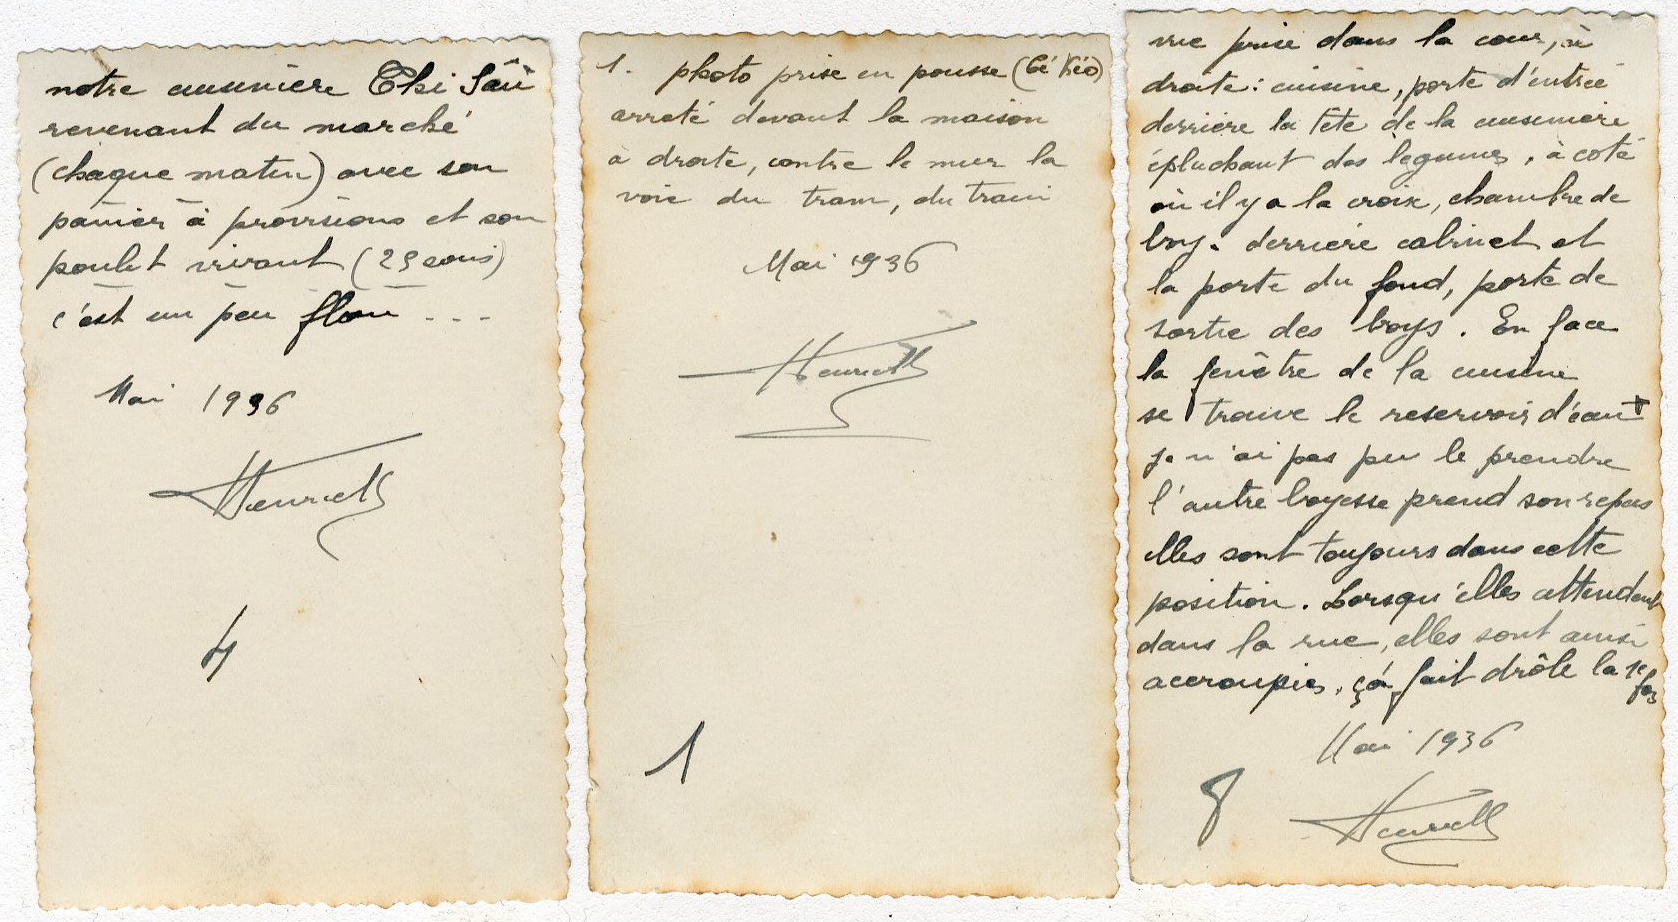 notre cuisinière Thi Sâu
revenant du marché
(chaque matin) avec son
panier à provisions et son
poulet vivant (25 sous)
c'est un peu flou ...
Mai 1936
Henriette
4
1. photo prise en pousse (Cé Kéo)
arreté devant la maison
à droite, contre le mur la
voie du tram, du train
Mai 1936
Henriette
1
vue prise dans la cour, à
droite : cuisine, porte d'entrée
derrière la tête de la cuisinière
épluchant des legumes, à coté
où il y a la croix, chambre de
boy. derrière cabinet et
la porte du fond, porte de
sortie des boys. En face
la fenêtre de la cuisine
se trouve le reservoir d'eau +
je n'ai pas pu le prendre
l'autre boyesse prend son repas
elles sont toujours dans cette
position. Lorsqu'elles attendent
dans la rue, elles sont ainsi
accroupies, çà fait drôle la 1e fois
Mai 1936
8
Henriette